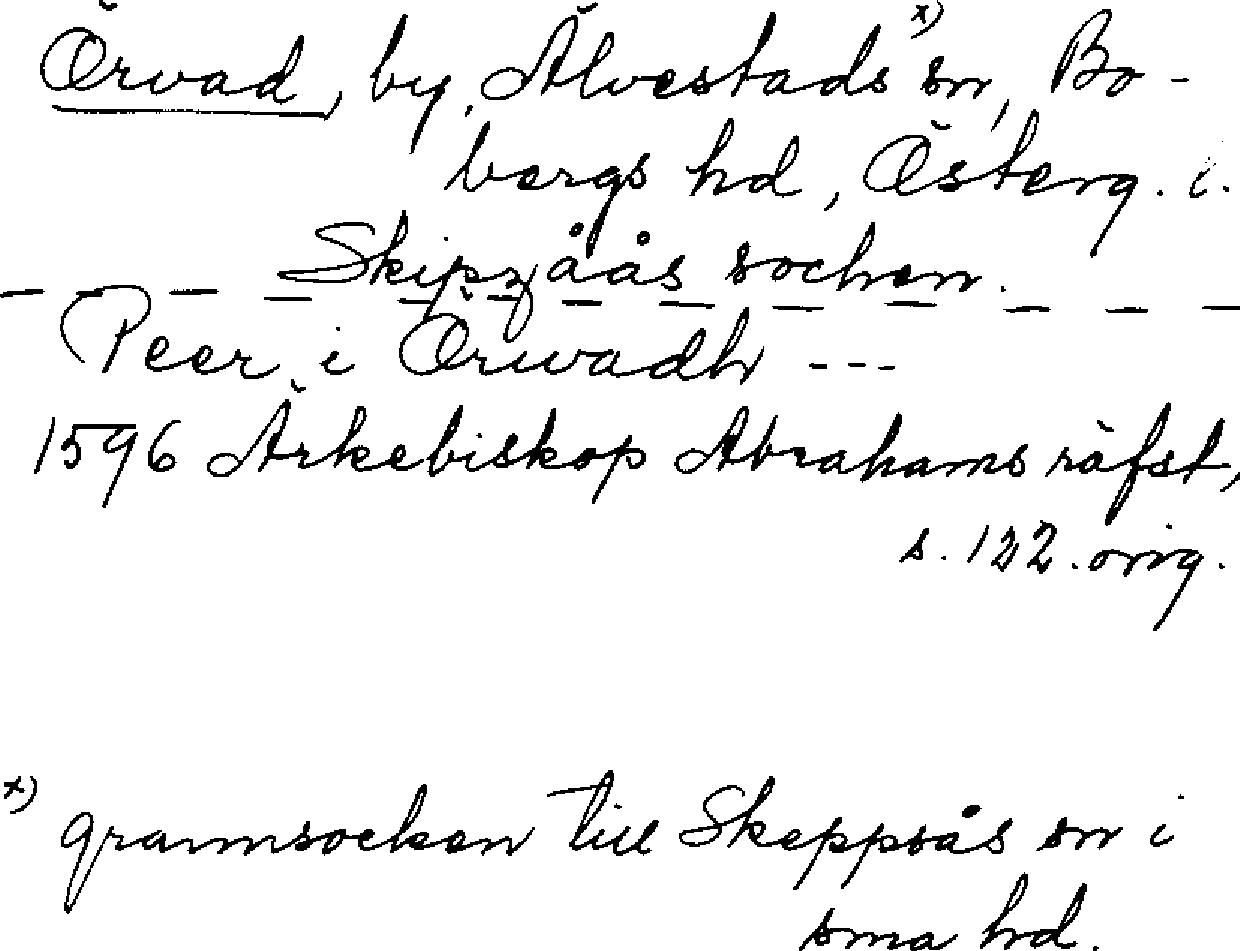 Örvad, by, Älvestads x) sn, Bo-
bergs hd, Österg. l.
Skipzåås sochen.
Peer i Örwadh ---
1596 Ärkebiskop Abrahams räfst,
s. 122. orig.
x) grannsocken till Skeppsås sn i
sma hd.